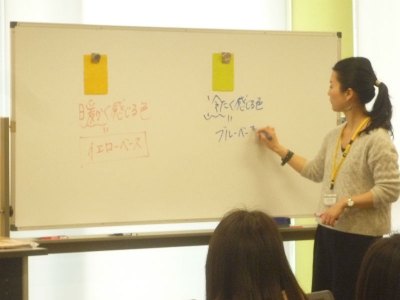 暖かく感じる色
イエローベース
冷たく感じる色
ブルーベース